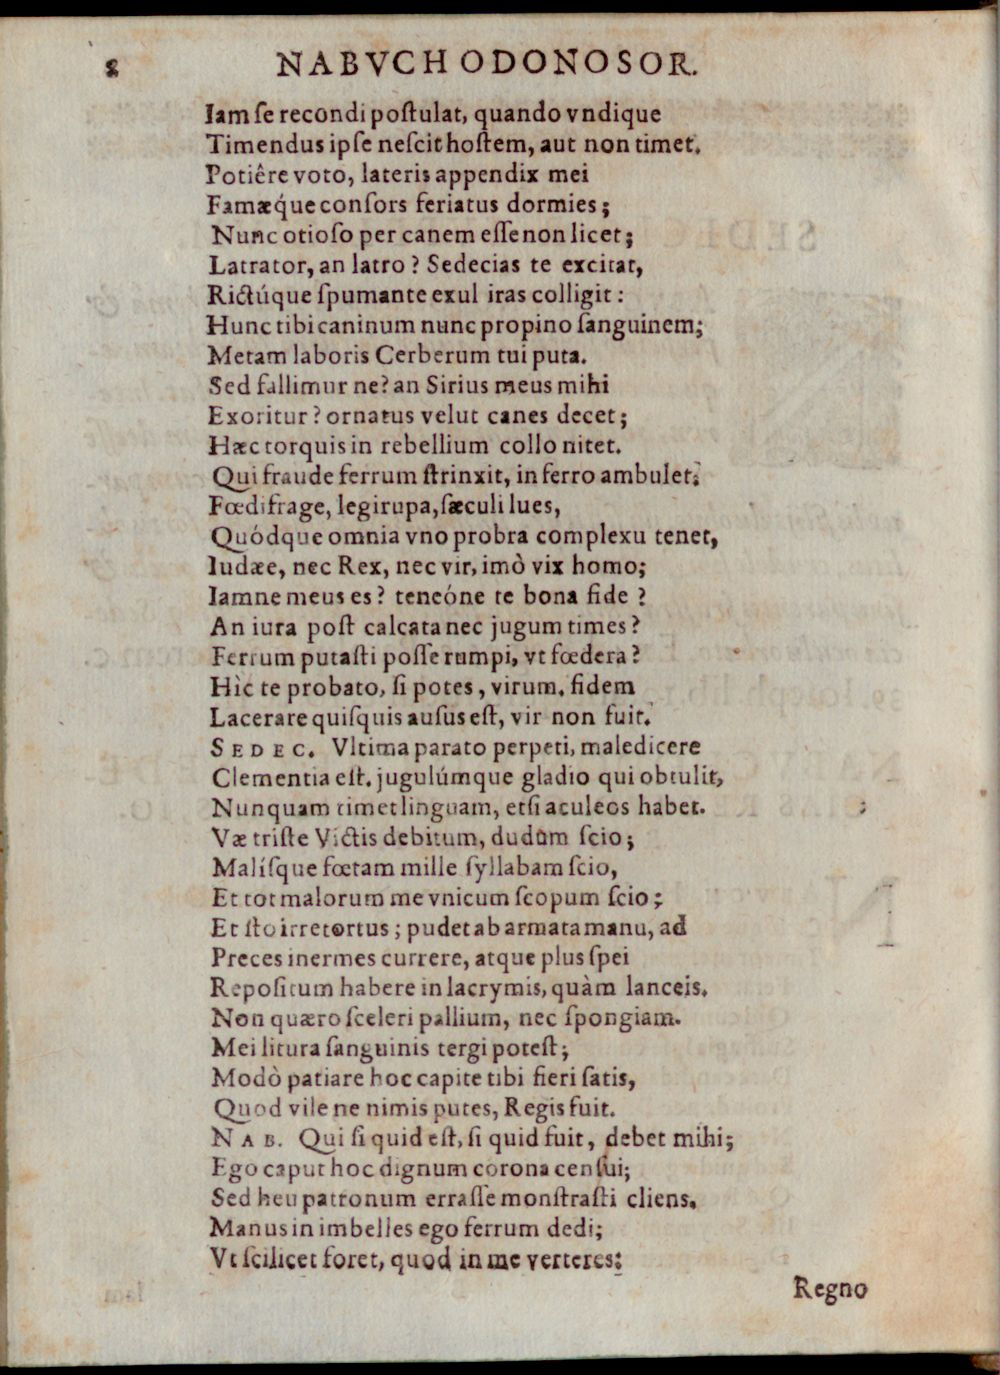 8 NABVCHODONOSOR.
Iam ſe recondi poſtulat, quando vndique
Timendus ipſe neſcit hoſtem, aut non timet.
Potiêre voto, lateris appendix mei
Famæq́ue conſors feriatus dormies;
Nunc otioſo per canem eſſe non licet;
Latrator, an latro? Sedecias te excitat,
Rictúque ſpumante exul iras colligit:
Hunc tibi caninum nunc propino ſanguinem;
Metam laboris Cerberum tui puta.
Sed fallimur ne? an Sirius meus mihi
Exoritur? ornatus velut canes decet;
Hæc torquis in rebellium collo nitet.
Qui fraude ferrum ſtrinxit, in ferro ambulet.
Fœdifrage, legirupa, ſæculi lues,
Quódque omnia vno probra complexu tenet,
Iudæe, nec Rex, nec vir, imò vix homo;
Iamne meus es? teneóne te bona fide?
An iura poſt calcata nec jugum times?
Ferrum putaſti poſſe rumpi, vt fœdera?
Hìc te probato, ſi potes, virum. fidem
Lacerare quiſquis auſus eſt, vir non fuit.
SEDEC. Vltima parato perpeti, maledicere
Clementia eſt. jugulúmque gladio qui obtulit,
Nunquam timet linguam, etſi aculeos habet.
Væ triſte Victis debitum, dudum ſcio;
Malíſque fœtam mille ſyllabam ſcio,
Et tot malorum me vnicum ſcopum ſcio;
Et ſto irretortus; pudet ab armata manu, ad
Preces inermes currere, atque plus ſpei
Repoſitum habere in lacrymis, quàm lanceis.
Non quæro ſceleri pallium, nec ſpongiam.
Mei litura ſanguinis tergi poteſt;
Modò patiare hoc capite tibi fieri ſatis,
Quod vile ne nimis putes, Regis fuit.
NAB. Qui ſi quid eſt, ſi quid fuit, debet mihi;
Ego caput hoc dignum corona cenſui;
Sed heu patronum erraſſe monſtraſti cliens.
Manus in imbelles ego ferrum dedi;
Vt ſcilicet foret, quod in me verteres:
Regno